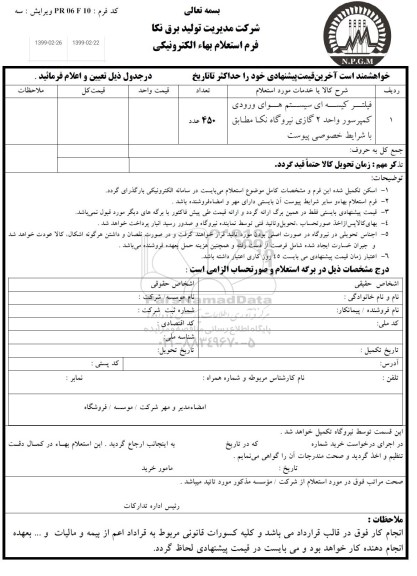 بسمه تعالی
کد فرم : PR 06 F 10 ویرایش : سه
شرکت مدیریت تولید برق نکا
فرم استعلام بهاء الکترونیکی
1399-02-26
1399-02-22
N.P.G.M
خواهشمند است آخرین قیمت پیشنهادی خود را حداکثر تا تاریخ درجدول ذیل تعیین و اعلام فرمائید .
ردیف شرح کالا یا خدمات مورد استعلام تعداد قیمت واحد قیمت کل ملاحظات
۱ فیلتر کیسه ای سیستم هوای ورودی کمپرسور واحد ۲ گازی نیروگاه نکا مطابق با شرایط خصوصی پیوست ۴۵۰ عدد
جمع کل به حروف:
تذکر مهم : زمان تحویل کالا حتماً قید گردد.
توضیحات:
۱- اسکن تکمیل شده این فرم و مشخصات کامل موضوع استعلام می‌بایست در سامانه الکترونیکی بارگذاری گردد.
۲- فرم استعلام بهاءو سایر شرایط پیوست آن بایستی دارای مهر و امضاءفروشنده باشد .
۳- قیمت پیشنهادی بایستی فقط در همین برگ ارائه گردد و ارائه قیمت طی پیش فاکتور یا برگه های دیگر مورد قبول نمی‌باشد.
۴- بهای کالاپس‌ازاخذ صورتحساب ،تحویل‌وتائید فنی توسط نماینده نیروگاه و صدور رسید انبار پرداخت خواهد شد .
۵- اجناس تحویلی در نیروگاه در صورت اصلی بودن مورد تائید قرار خواهند گرفت و در صورت نقصان و داشتن هرگونه اشکال، کالا عودت خواهد شد
و جبران خسارت ایجاد شده شامل فرصت از دست رفته و همچنین هزینه حمل بعهده فروشنده می‌باشد .
۶- اعتبار زمان قیمت پیشنهادی می بایست ۴۵ روز کاری اعتبار داشته باشد.
درج مشخصات ذیل در برگه استعلام و صورتحساب الزامی است :
اشخاص حقیقی اشخاص حقوقی
نام و نام خانوادگی : نام موسسه / شرکت :
نام فروشنده / پیمانکار: شماره ثبت شرکت :
کد ملی: کد اقتصادی :
شناسه ملی:
تاریخ تکمیل : تاریخ تحویل:
آدرس: کد پستی :
تلفن : نام کارشناس مربوطه و شماره همراه : نمابر :
ParsNamadData
۰۲۱-۸۸۳۴۹۶۷۰-۵
امضاءمدیر و مهر شرکت / موسسه / فروشگاه
این قسمت توسط نیروگاه تکمیل خواهد شد .
در اجرای درخواست خرید شماره که در تاریخ به اینجانب ارجاع گردید . این استعلام بهاء در کمال دقت
تنظیم و اخذ گردید و صحت مندرجات آن را گواهی می‌نمایم .
تاریخ : مامور خرید
صحت مراتب فوق در مورد استعلام از شرکت / مؤسسه مذکور مورد تائید میباشد .
رئیس اداره تدارکات
ملاحظات :
انجام کار فوق در قالب قرارداد می باشد و کلیه کسورات قانونی مربوط به قراداد اعم از بیمه و مالیات و ... بعهده
انجام دهنده کار خواهد بود و می بایست در قیمت پیشنهادی لحاظ گردد.